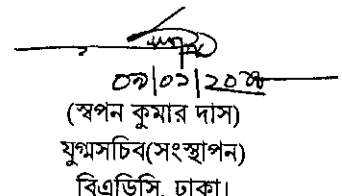 (স্বপন কুমার দাস)
যুগ্মসচিব(সংস্থাপন)
বিএডিসি, ঢাকা।